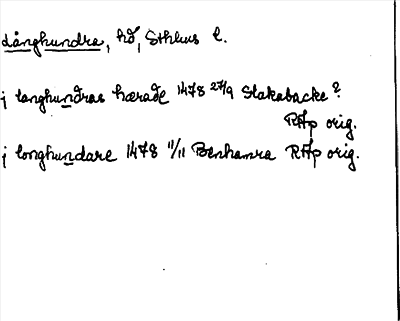 Långhundra, hd, Sthlms l.
j langhundras hærade 1478 27/9 Stakabacke?
RAp orig.
j longhundare 1478 11/11 Benhamra RAp orig.